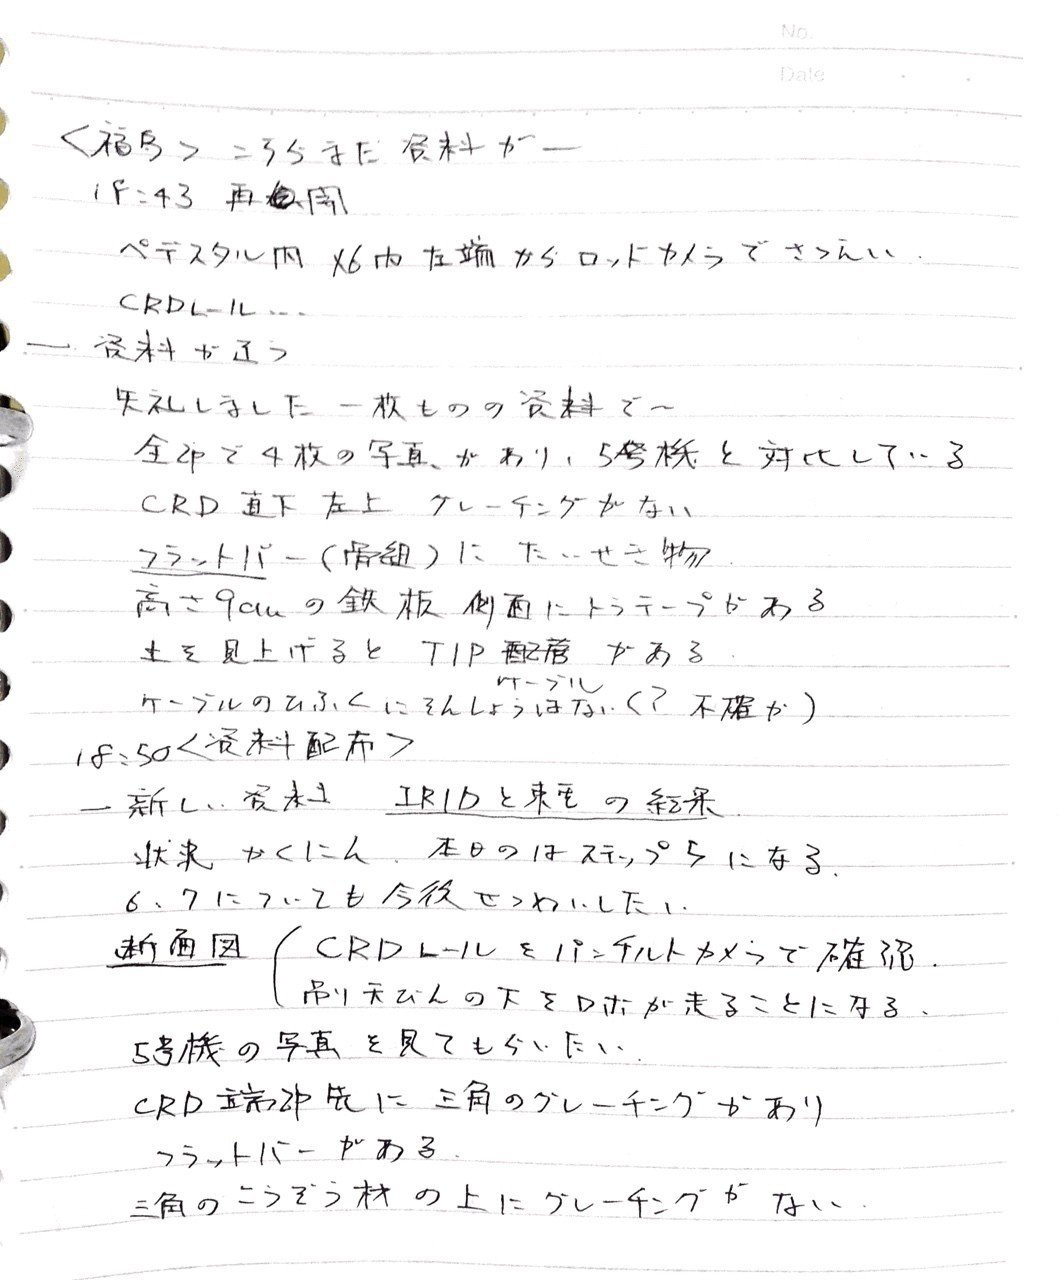 No.
Date
<福島> こちらまだ資料がー
18:43 再開
ペデスタル内 X6内 左端からロッドカメラでさつえい.
CRDレール...
― 資料が違う
失礼しました 一枚ものの資料で～
全部で4枚の写真があり、5号機と対比している
CRD 直下 左上 グレーチングがない
フラットバー(骨組)に たいせき物.
高さ9cmの鉄板 側面にトラテープがある
上を見上げると TIP 配管 がある.
ケーブル
ケーブルのひふくにそんしょうはない(? 不確か)
18:50 <資料配布>
― 新しい資料 IRIDと東電の結果.
状況 かくにん. 本日のはステップ5になる.
6、7についても今後せつめいしたい.
断面図 ( CRDレールをパンチルトカメラで確認.
吊り天びんの下をロボが走ることになる.
5号機の写真を見てもらいたい.
CRD 端部先に 三角のグレーチングがあり
フラットバーがある.
三角のこうぞう材の上にグレーチングがない.